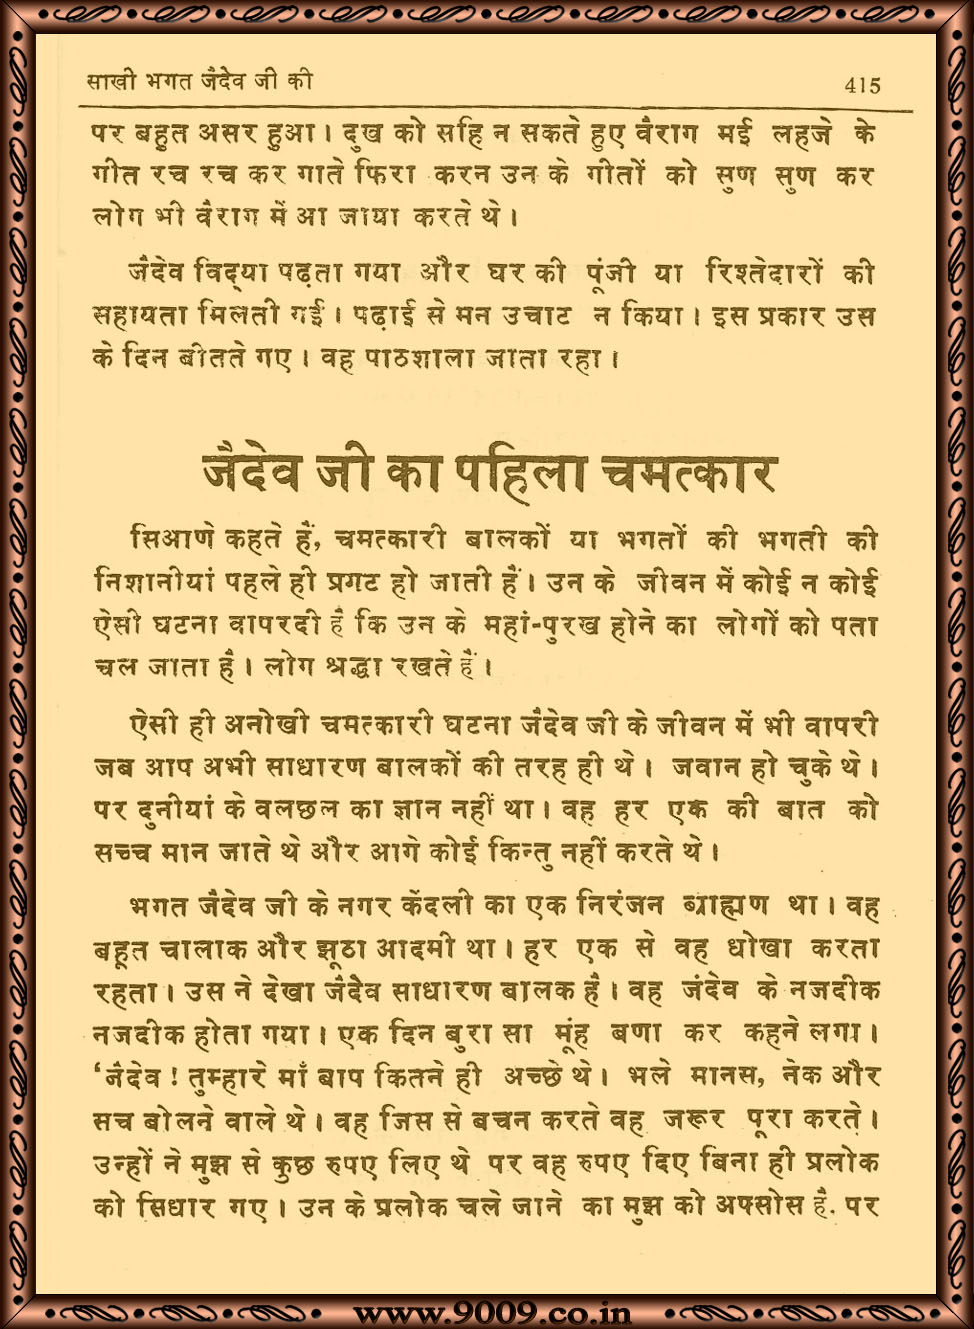 साखी भगत जैदेव जी की 415
पर बहुत असर हुआ। दुख को सहि न सकते हुए वैराग मई लहजे के
गीत रच रच कर गाते फिरा करन उन के गीतों को सुण सुण कर
लोग भी वैराग में आ जाया करते थे।
जैदेव विद्या पढ़ता गया और घर की पूंजी या रिश्तेदारों की
सहायता मिलती गई। पढ़ाई से मन उचाट न किया। इस प्रकार उस
के दिन बीतते गए। वह पाठशाला जाता रहा।
जैदेव जी का पहिला चमत्कार
सिआणे कहते हैं, चमत्कारी बालकों या भगतों की भगती की
निशानीयां पहले ही प्रगट हो जाती हैं। उन के जीवन में कोई न कोई
ऐसी घटना वापरदी है कि उन के महां-पुरख होने का लोगों को पता
चल जाता है। लोग श्रद्धा रखते हैं।
ऐसी ही अनोखी चमत्कारी घटना जैदेव जी के जीवन में भी वापरी
जब आप अभी साधारण बालकों की तरह ही थे। जवान हो चुके थे।
पर दुनीयां के वलछल का ज्ञान नहीं था। वह हर एक की बात को
सच्च मान जाते थे और आगे कोई किन्तु नहीं करते थे।
भगत जैदेव जी के नगर केंदली का एक निरंजन ब्राह्मण था। वह
बहूत चालाक और झूठा आदमी था। हर एक से वह धोखा करता
रहता। उस ने देखा जैदेव साधारण बालक है। वह जंदेव के नजदीक
नजदीक होता गया। एक दिन बुरा सा मूंह बणा कर कहने लगा।
‘जैदेव! तुम्हारे माँ बाप कितने ही अच्छे थे। भले मानस, नेक और
सच बोलने वाले थे। वह जिस से बचन करते वह जरूर पूरा करते।
उन्हों ने मुझ से कुछ रुपए लिए थे पर वह रुपए दिए बिना ही प्रलोक
को सिधार गए। उन के प्रलोक चले जाने का मुझ को अफ्सोस है. पर
www.9009.co.in